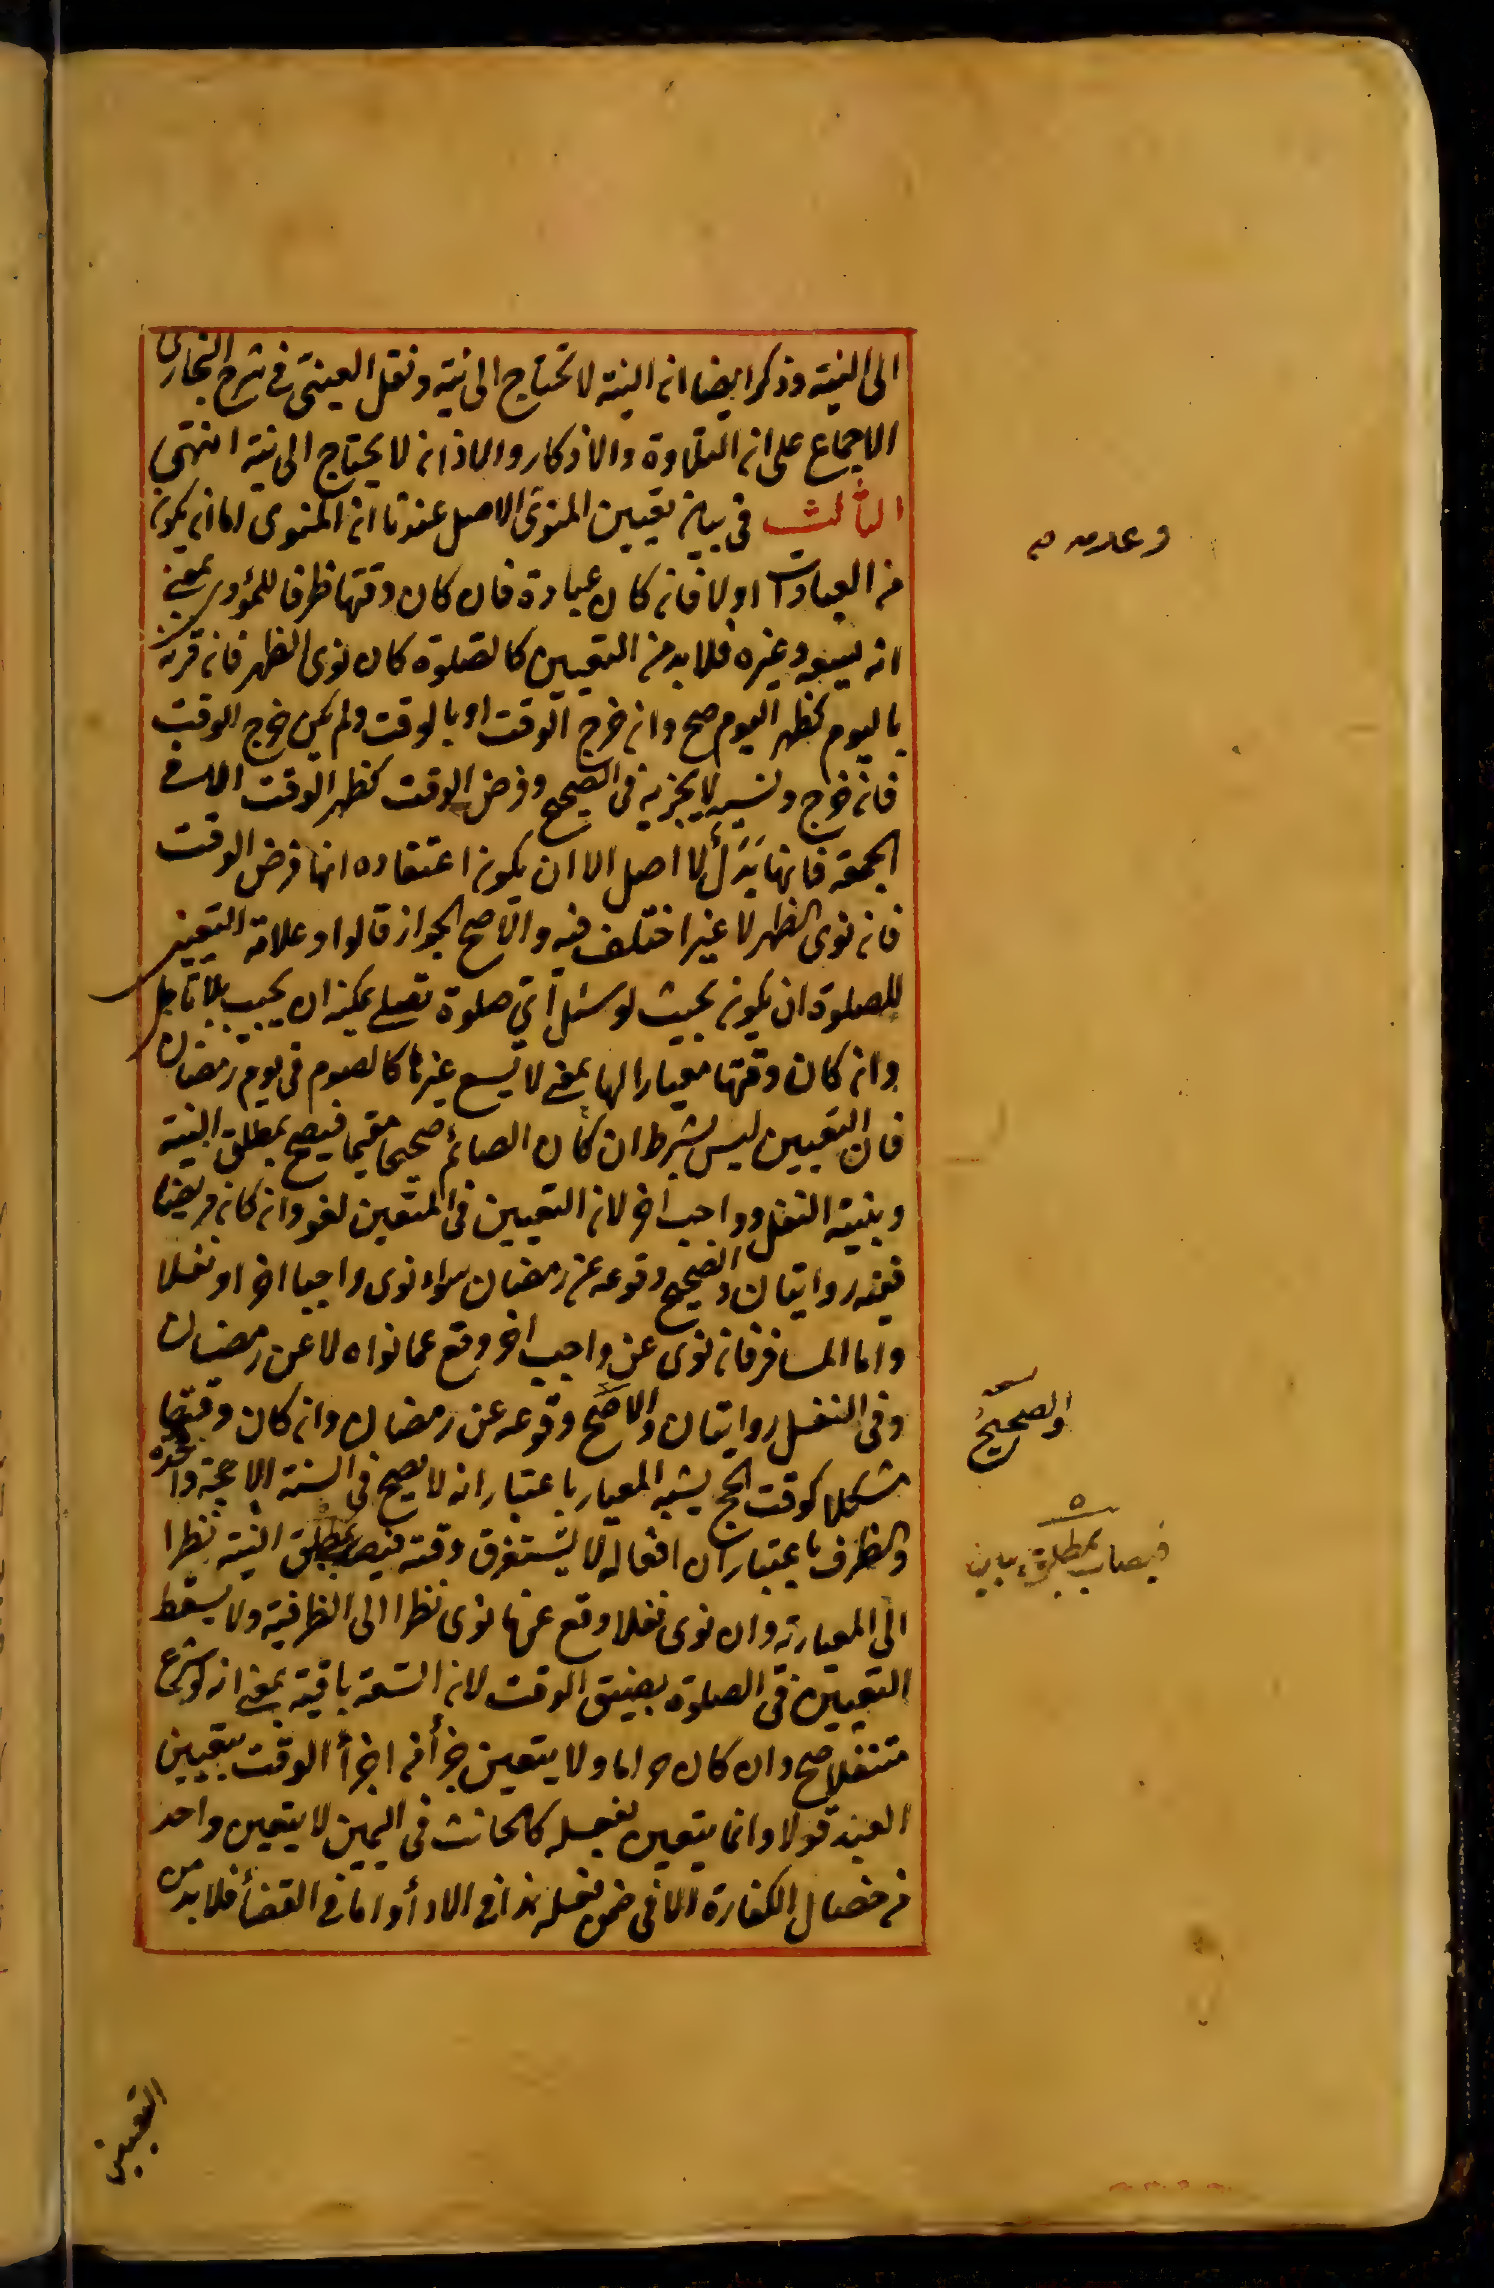 الى النية وذكر ايضا ان النية لا تحتاج الى نية ونقل العينى فى شرح البخارى
الاجماع على ان التلاوة والاذكار والاذان لا يحتاج الى نية انتهى
الثالث فى بيان تعيين المنوى الاصل عندنا ان المنوى اما ان يكون
من العبادات اولا فان كان عبادة فان كان وقتها ظرفا للمؤدى بمعنى
انه يسعه وغيره فلا بد من التعيين كالصلوة كان نوى الظهر فان قرنه
باليوم كظهر اليوم صح وان خرج الوقت او بالوقت ولم يكن خرج الوقت
فان خرج ونسيه لا يجزيه فى الصحيح وفرض الوقت كظهر الوقت الا فى
الجمعة فانها بدل لا اصل الا ان يكون اعتقاده انها فرض الوقت
فان نوى الظهر لا غير اختلف فيه والاصح الجواز قالوا وعلامة التعيين
للصلوة ان يكون بحيث لو سئل اى صلوة تصلى يمكنه ان يجيب بلا تامل
وان كان وقتها معيارا لها بمعنى لا يسع غيرها كالصوم فى يوم رمضان
فان التعيين ليس بشرط ان كان الصائم صحيحا مقيما فيصح بمطلق النية
وبنية النفل وواجب اخر لان التعيين فى المتعين لغو وان كان مريضا
ففيه روايتان والصحيح وقوعه عن رمضان سواء نوى واجبا اخر او نفلا
واما المسافر فان نوى عن واجب اخر وقع عما نواه لا عن رمضان
وفى النفل روايتان والاصح وقوعه عن رمضان وان كان وقتها
مشكلا كوقت الحج يشبه المعيار باعتبار انه لا يصح فى السنة الا حجة واحدة
والظرف باعتبار ان افعاله لا يستغرق وقته فيصاب بمطلق النية نظرا
الى المعيارية وان نوى نفلا وقع عما نوى نظرا الى الظرفية ولا يسقط
التعيين فى الصلوة بضيق الوقت لان السعة باقية بمعنى انه لو شرع
متنفلا صح وان كان حراما ولا يتعين جزأ من اجزأ الوقت بتعيين
العبد قولا وانما يتعين بفعله كالحانث فى اليمين لا يتعين واحد
من خصال الكفارة الا فى ضمن فعله هذا فى الادأ واما فى القضأ فلا بد من
التعيين
والصحيح
فيصاب بمطلق